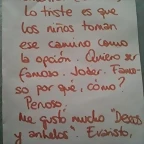 Lo triste es que
los niños toman
ese camino como
la opción. Quiero ser
famoso. Joder. Famo-
so por qué, cómo?
Penoso.
Me gustó mucho "Deseos
y anhelos". Evaristo,